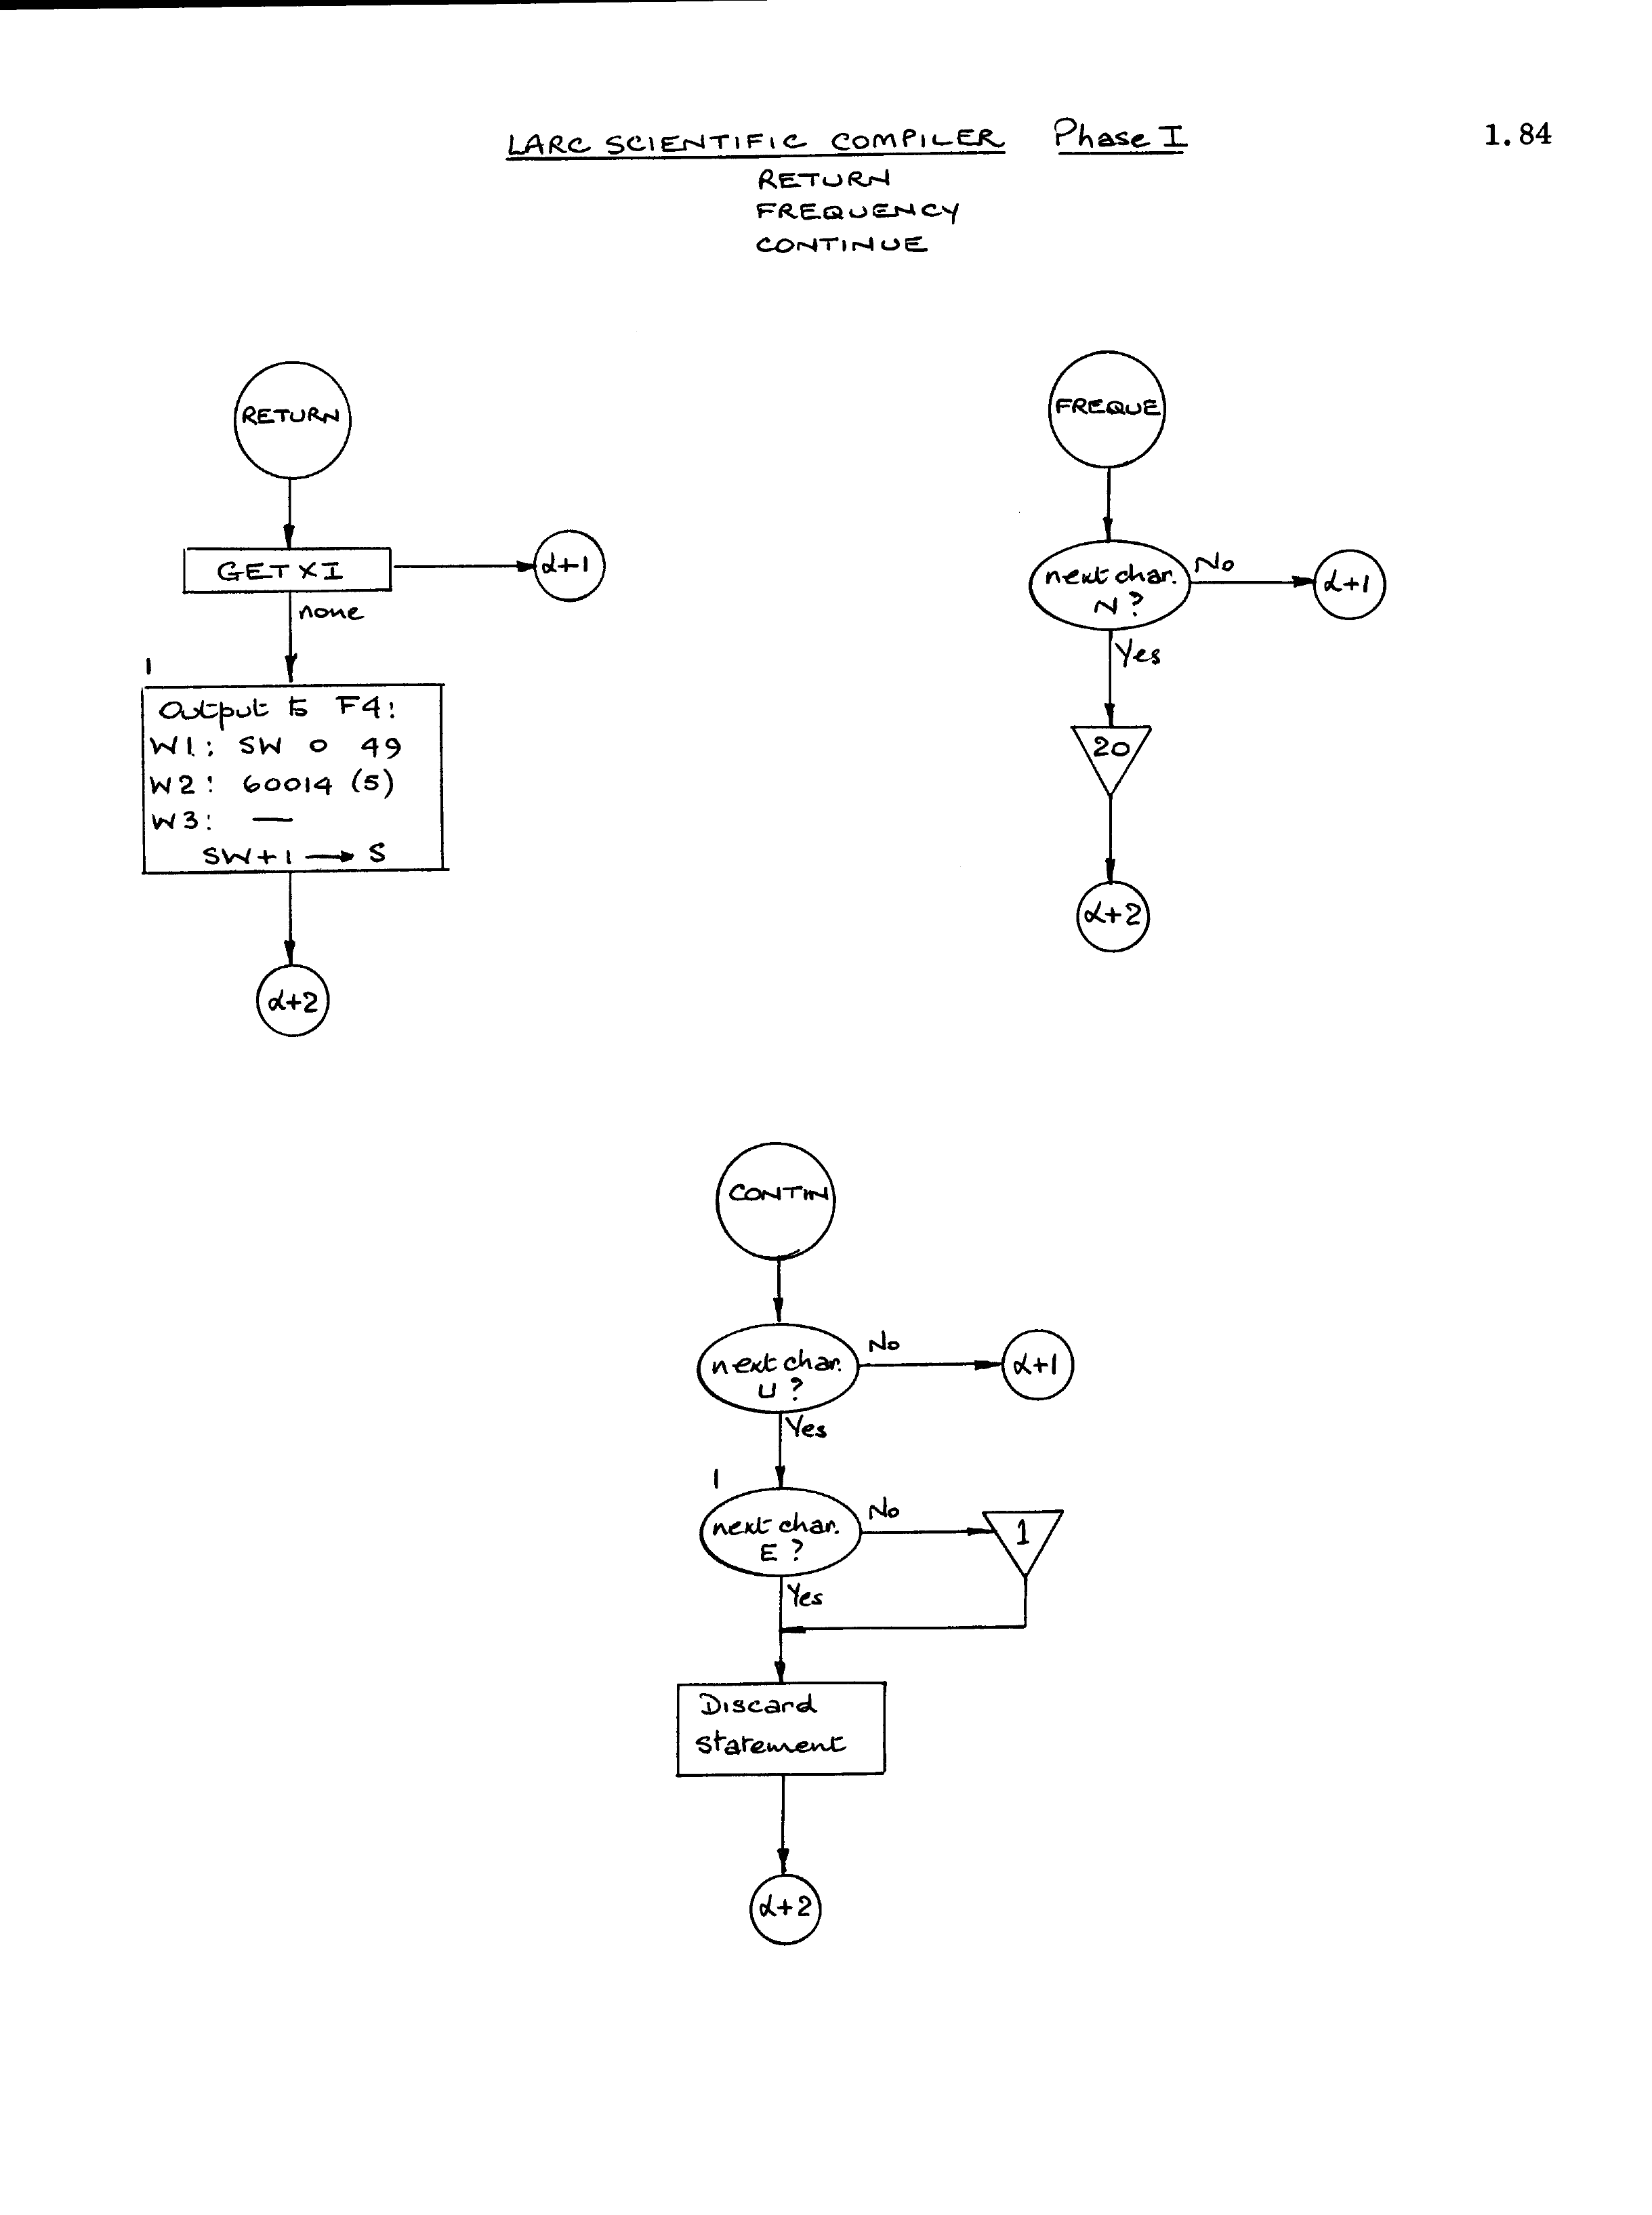 LARC SCIENTIFIC COMPILER Phase I
1.84
RETURN
FREQUENCY
CONTINUE
RETURN
GETXI
α+1
none
1
Output to F4:
W1: SW 0 49
W2: 60014 (5)
W3: —
SW+1 → S
α+2
FREQUE
next char.
N?
No
α+1
Yes
20
α+2
CONTIN
next char.
U?
No
α+1
Yes
1
next char.
E?
No
1
Yes
Discard
statement
α+2